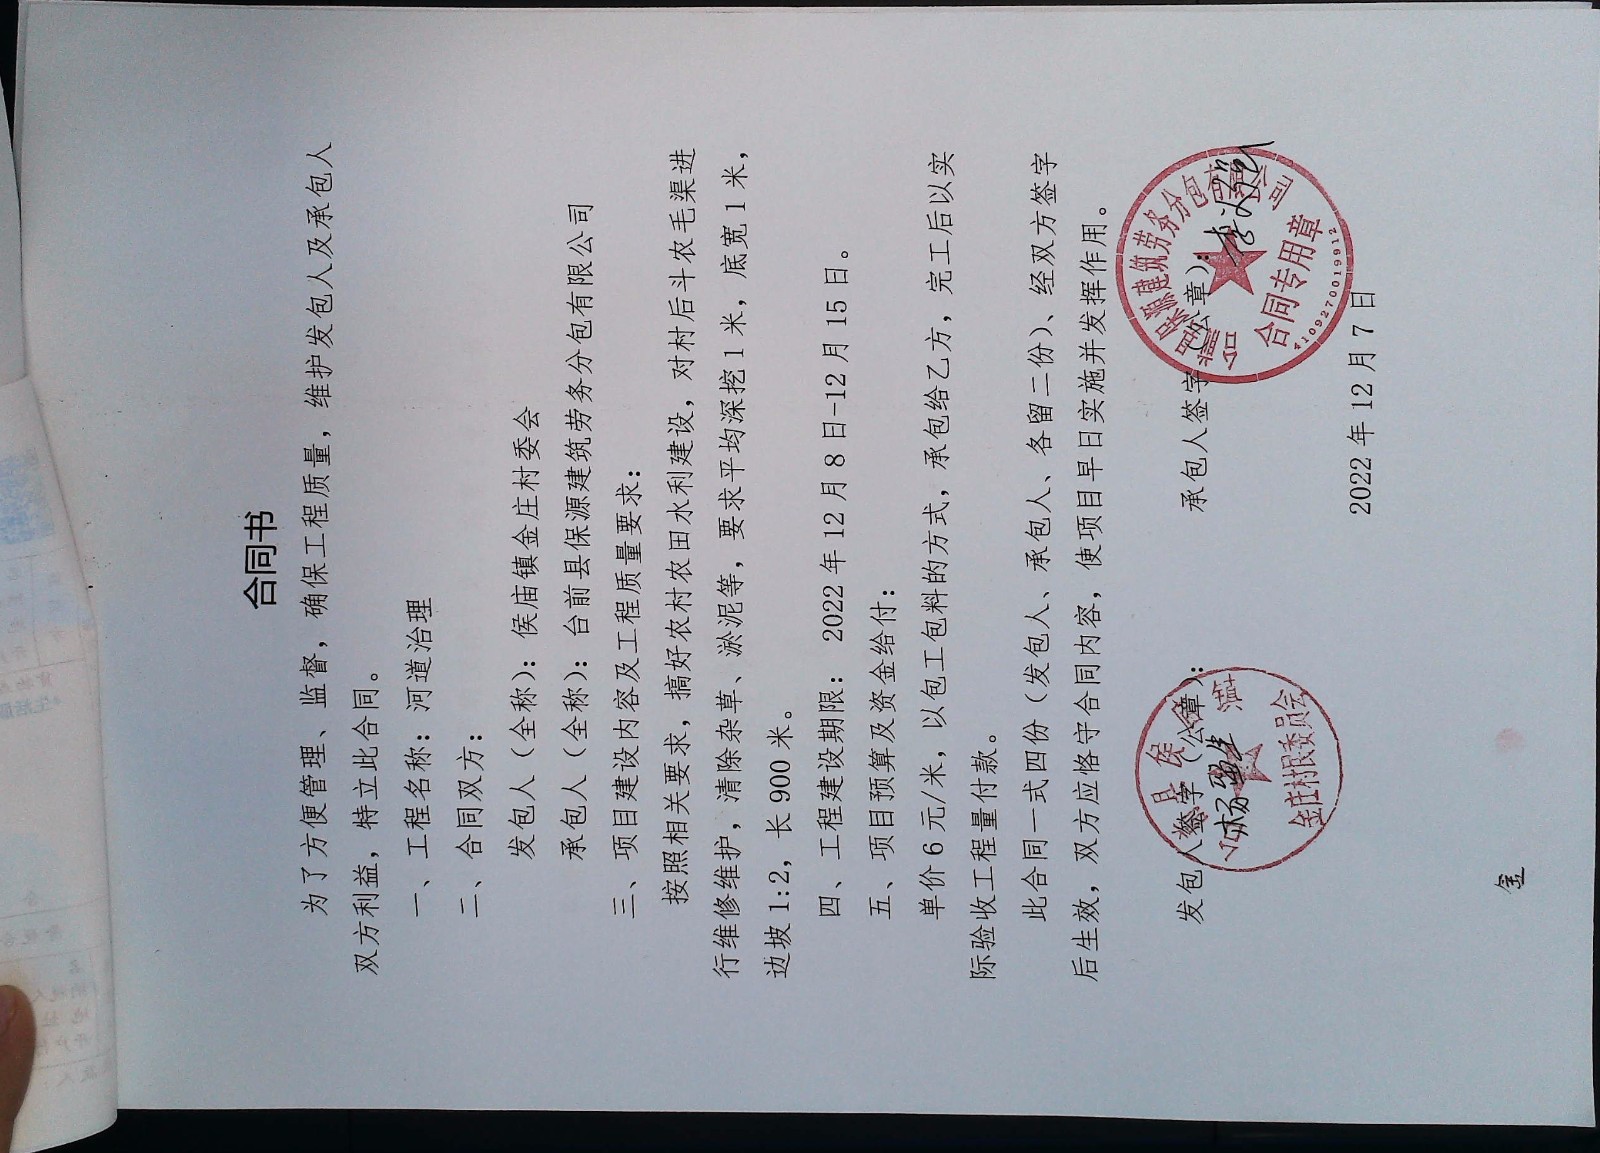 合同书
为了方便管理、监督，确保工程质量，维护发包人及承包人
双方利益，特立此合同。
一、工程名称：河道治理
二、合同双方：
发包人（全称）：侯庙镇金庄村委会
承包人（全称）：台前县保源建筑劳务分包有限公司
三、项目建设内容及工程质量要求：
按照相关要求，搞好农村农田水利建设，对村后斗农毛渠进
行维修维护，清除杂草、淤泥等，要求平均深挖1米，底宽1米，
边坡1:2，长900米。
四、工程建设期限：2022年12月8日-12月15日。
五、项目预算及资金给付：
单价6元/米，以包工包料的方式，承包给乙方，完工后以实
际验收工程量付款。
此合同一式四份（发包人、承包人、各留二份）、经双方签字
后生效，双方应恪守合同内容，使项目早日实施并发挥作用。
发包人签字（公章）：
承包人签字（公章）：
县侯 镇
金庄村民委员会
保源建筑劳务分包有限公司
合同专用章
4109270019912
2022年12月7日
金